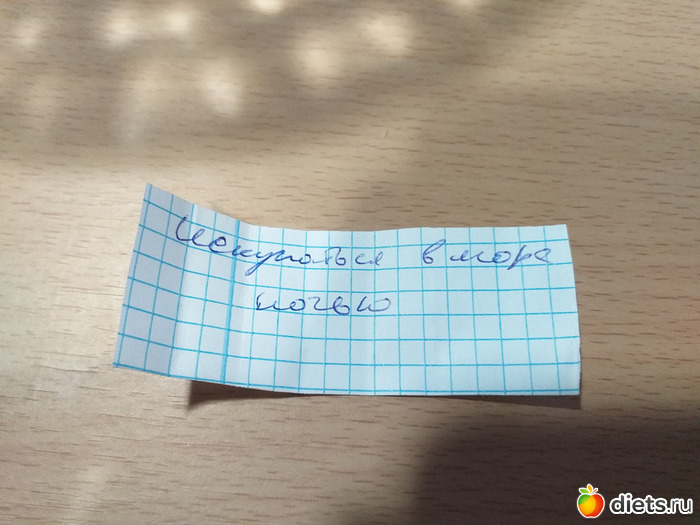 Искупаться в море
ночью
diets.ru